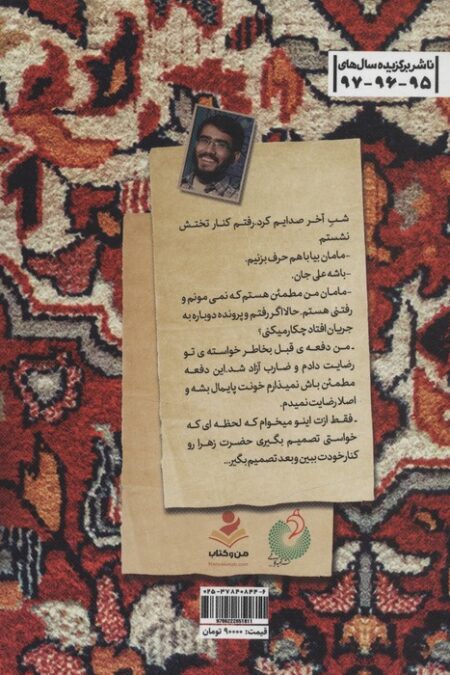 ناشر برگزیده سال‌های
۹۵-۹۶-۹۷
شبِ آخر صدایم کرد. رفتم کنار تختش
نشستم
-مامان بیا باهم حرف بزنیم.
-باشه علی جان.
-مامان من مطمئن هستم که نمی مونم و
رفتنی هستم. حالا اگر رفتم و پرونده دوباره به
جریان افتاد چکار میکنی؟
- من دفعه ی قبل بخاطر خواسته ی تو
رضایت دادم و ضارب آزاد شد. این دفعه
مطمئن باش نمیذارم خونت پایمال بشه و
اصلا رضایت نمیدم.
- فقط ازت اینو میخوام که لحظه ای که
خواستی تصمیم بگیری حضرت زهرا رو
کنار خودت ببین و بعد تصمیم بگیر...
من و کتاب
۰۲۵-۳۷۸۴۰۸۴۴-۶
قیمت: ۹۰۰۰۰ تومان